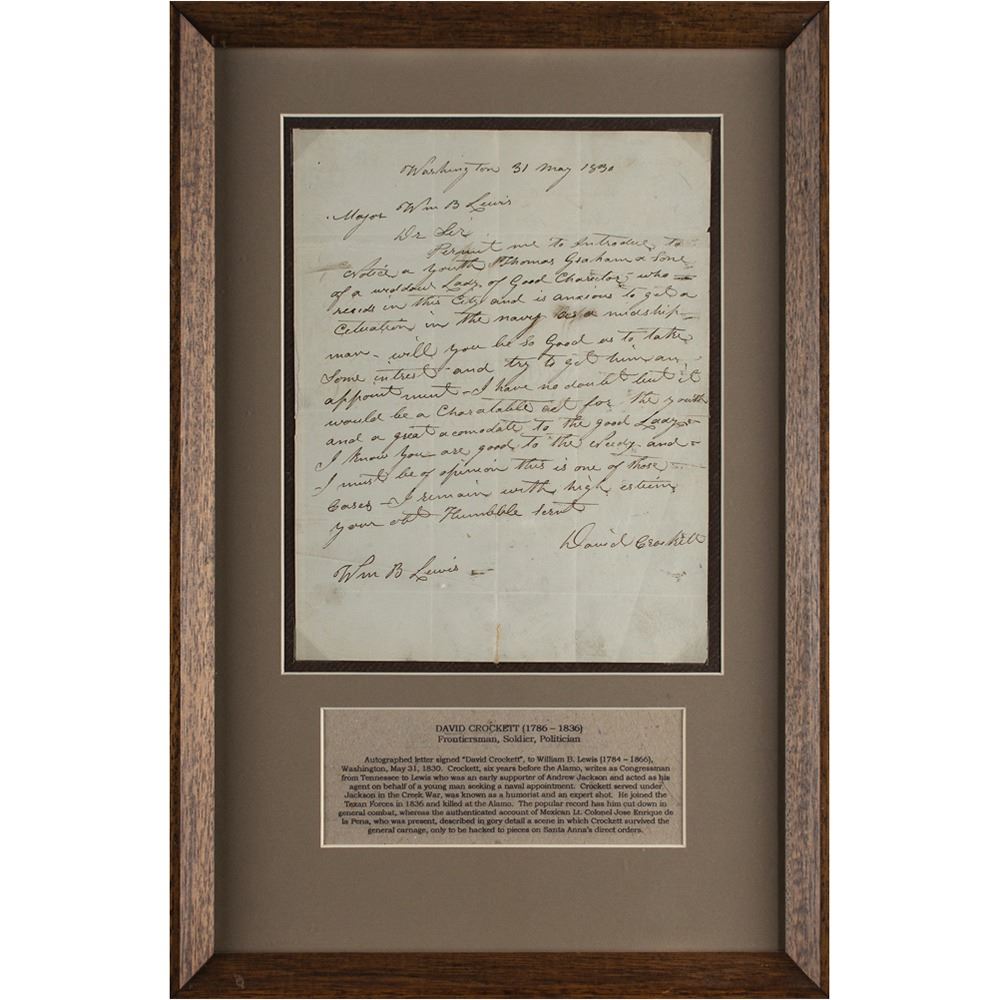 Washington 31 May 1830
Major Wm B Lewis
Dr Sir
Permit me to Introduce to
Notice a youth Thomas Graham a Sone
of a widdow Lady of Good Charector who
resids in this City and is anxious to get a
Cituation in the navy as a midship-
man - will you be so Good as to take
Some intrest and try to get him an
appointment - I have no doubt but it
would be a Charatable act for the youth
and a great acomodate to the good Lady
I know you are good to the Needy and
I must be of opinion this is one of those
Cases - I remain with high esteem
your obt Humbble servt
David Crockett
Wm B Lewis
DAVID CROCKETT (1786 – 1836)
Frontiersman, Soldier, Politician
Autographed letter signed "David Crockett", to William B. Lewis (1784 – 1866),
Washington, May 31, 1830. Crockett, six years before the Alamo, writes as Congressman
from Tennessee to Lewis who was an early supporter of Andrew Jackson and acted as his
agent on behalf of a young man seeking a naval appointment. Crockett served under
Jackson in the Creek War, was known as a humorist and an expert shot. He joined the
Texan Forces in 1836 and killed at the Alamo. The popular record has him cut down in
general combat, whereas the authenticated account of Mexican Lt. Colonel Jose Enrique de
la Pena, who was present, described in gory detail a scene in which Crockett survived the
general carnage, only to be hacked to pieces on Santa Anna's direct orders.